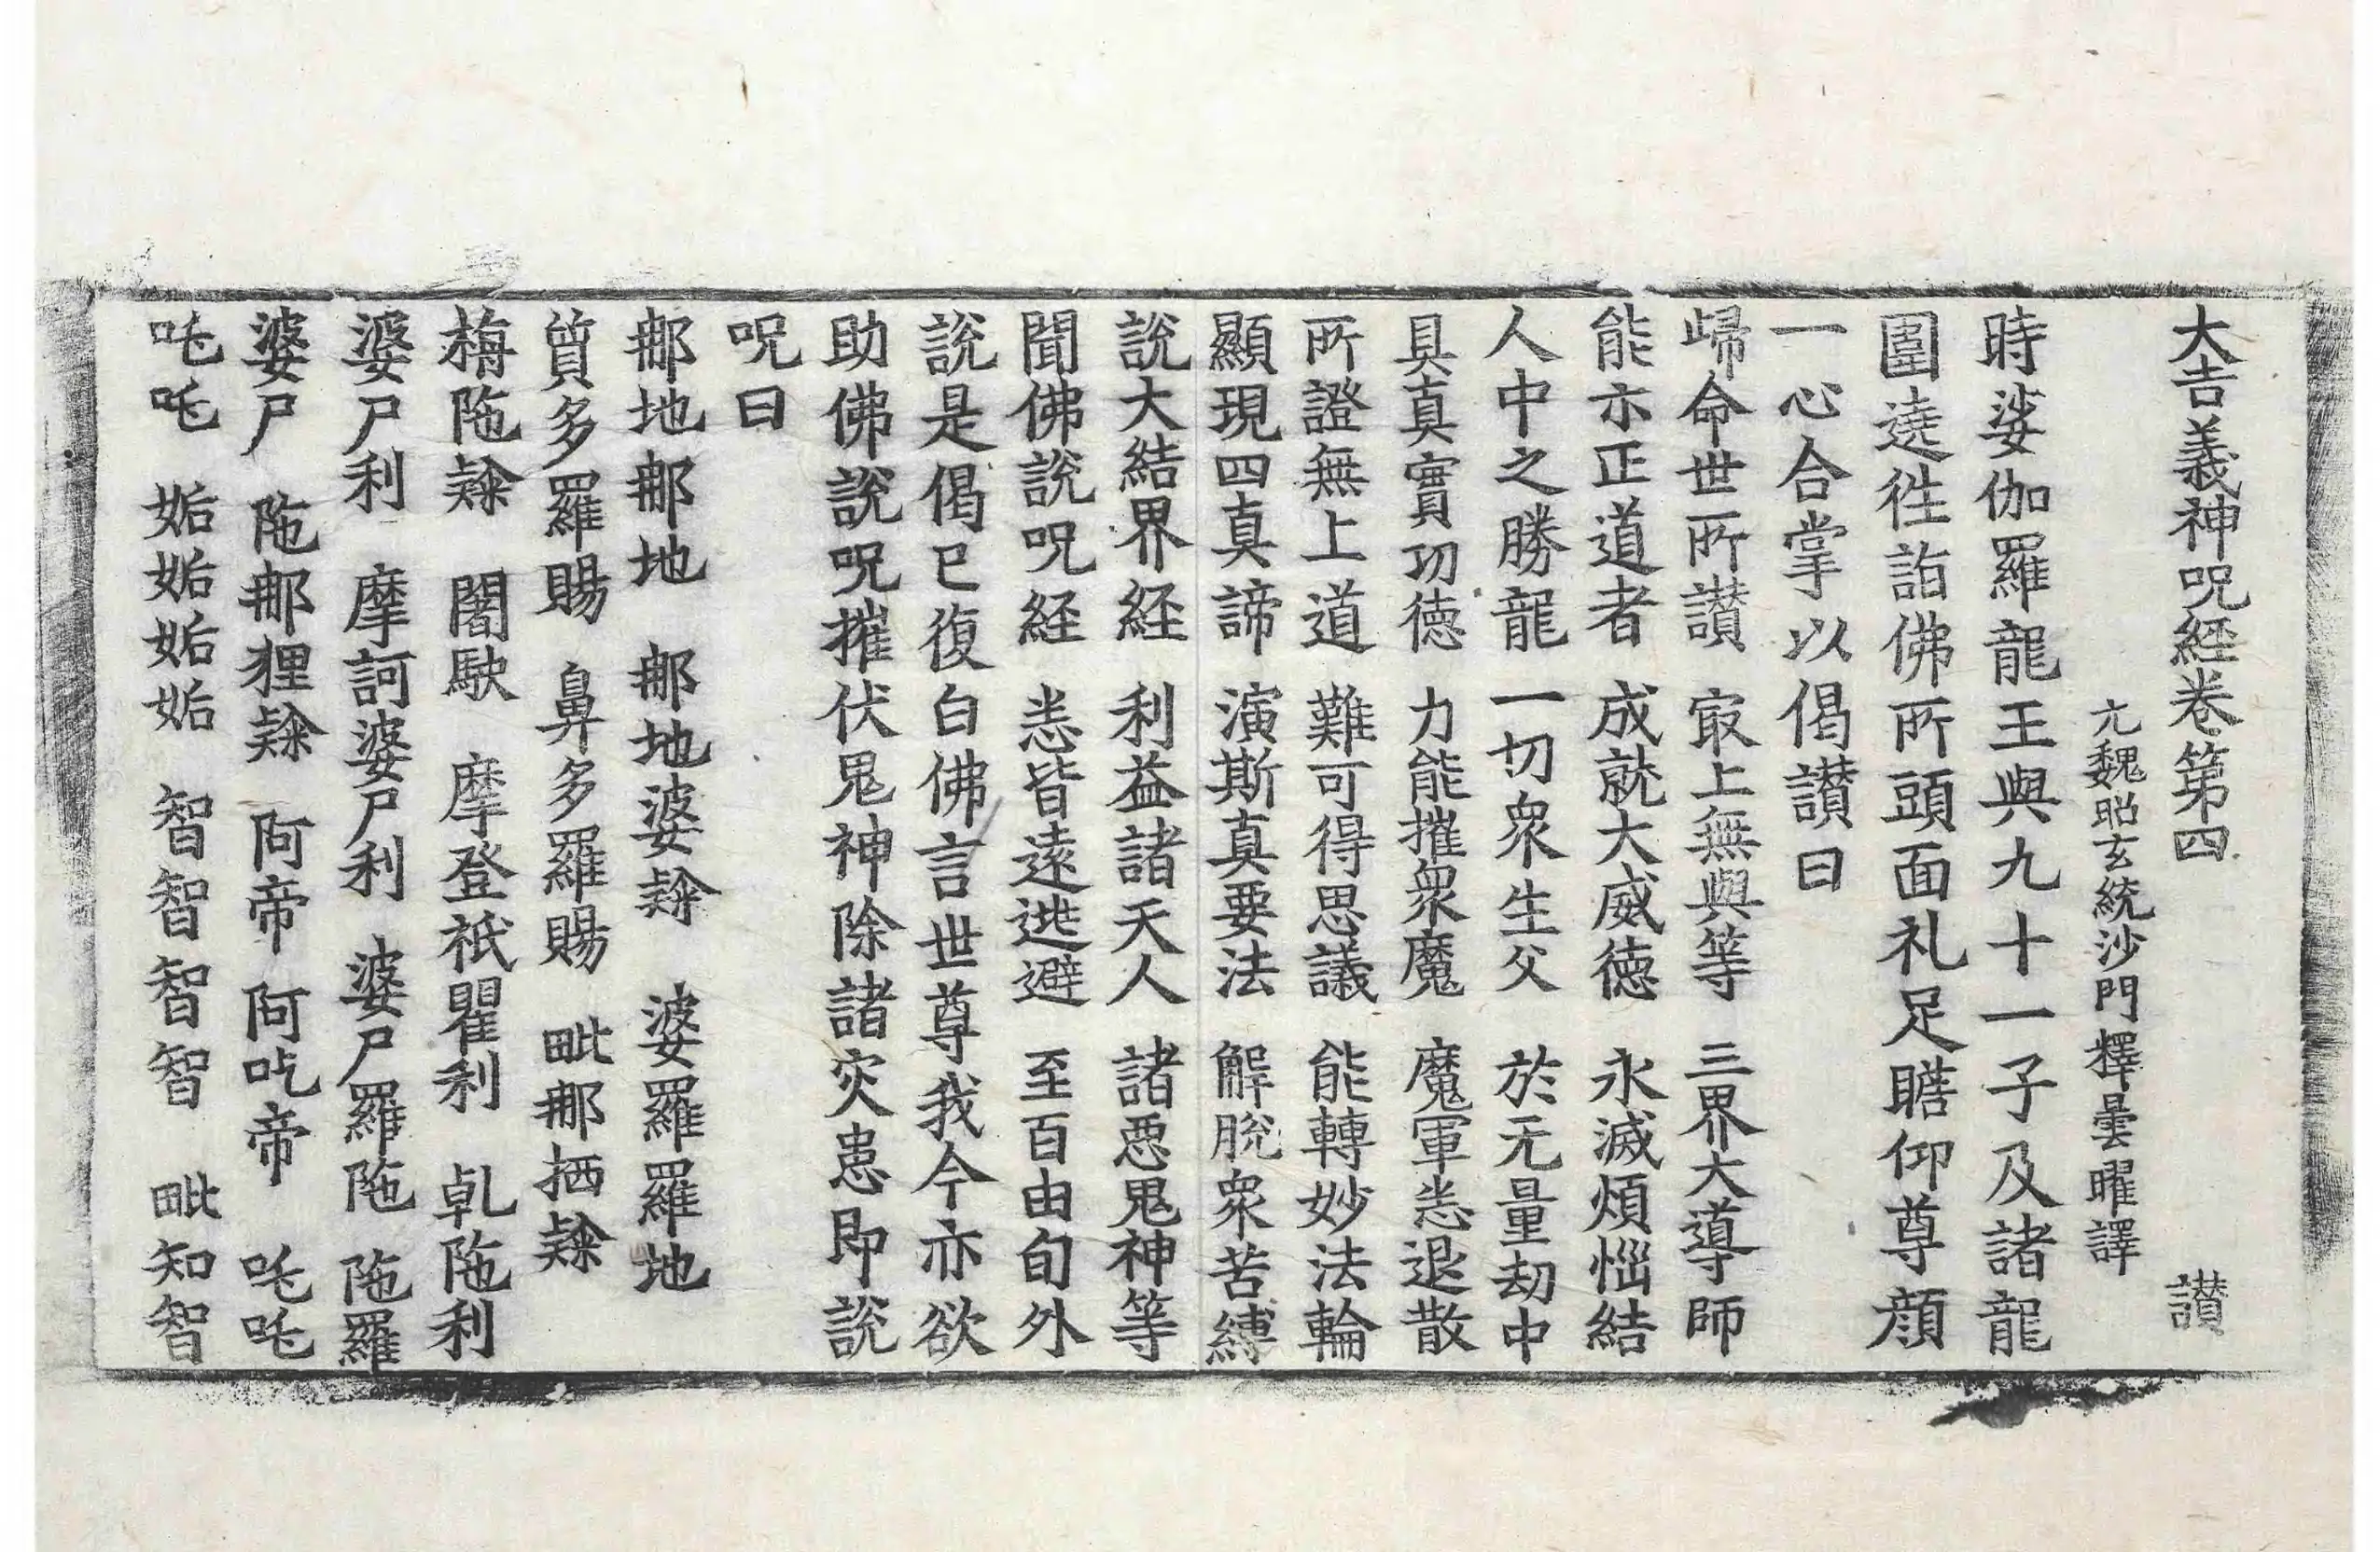 大吉義神呪経卷第四 讃
元魏昭玄統沙門釋曇曜譯
時娑伽羅龍王與九十一子及諸龍
圍遶徃詣佛所頭面礼足瞻仰尊顔
一心合掌以偈讃曰
歸命世所讃 㝡上無與等 三界大導師
能示正道者 成就大威徳 永滅煩惱結
人中之勝龍 一切衆生父 於无量劫中
具真實功徳 力能摧衆魔 魔軍悉退散
所證無上道 難可得思議 能轉妙法輪
顯現四真諦 演斯真要法 解脫衆苦縛
説大結界経 利益諸天人 諸惡鬼神等
聞佛説呪経 悉皆遠逃避 至百由旬外
説是偈已復白佛言世尊我今亦欲
助佛説呪摧伏鬼神除諸灾患即説
呪曰
那地那地 那地婆隸 婆羅羅地
質多羅賜 鼻多羅賜 毗那栖隸
梅陁隸 闍駃 摩登祇瞿利 乹陁利
婆尸利 摩訶婆尸利 婆尸羅陁 陁羅
婆尸 陁那狸隸 阿帝 阿吒帝 吒吒
吒吒 妬妬妬妬 智智智智 毗知智